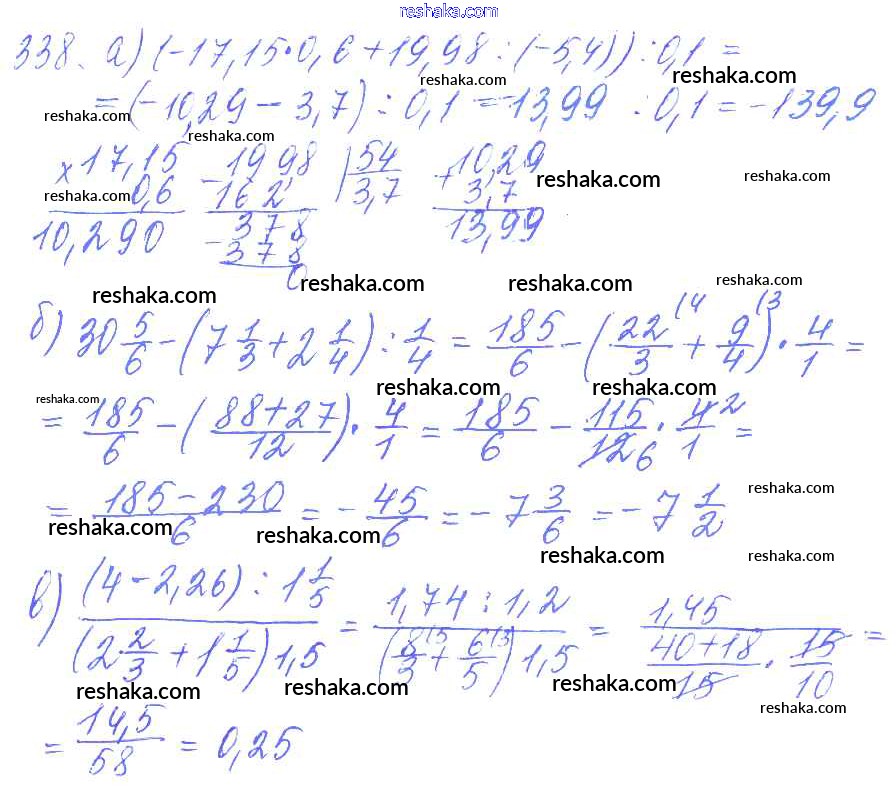 reshaka.com
338. а) (-17,15•0,6+19,98:(-5,4)):0,1=
reshaka.com reshaka.com
=(-10,29-3,7):0,1=-13,99:0,1=-139,9
reshaka.com reshaka.com
×17,15 -1998 |54 +10,29
reshaka.com 0,6 162 3,7 3,7 reshaka.com reshaka.com
10,290 -378 13,99
378
0
reshaka.com reshaka.com reshaka.com reshaka.com
б) 30 5/6 - (7 1/3 + 2 1/4) : 1/4 = 185/6 - (22/3 (4 + 9/4 (3) • 4/1 =
reshaka.com reshaka.com reshaka.com
= 185/6 - ((88+27)/12) • 4/1 = 185/6 - 115/12 6 • 4 2/1 =
= (185-230)/6 = - 45/6 = -7 3/6 = -7 1/2
reshaka.com reshaka.com reshaka.com
reshaka.com reshaka.com
в) ((4-2,26) : 1 1/5)/((2 2/3 + 1 1/5) 1,5) = (1,74 : 1,2)/((8/3 (5 + 6/5 (3) 1,5) = 1,45/((40+18)/15 • 15/10) =
reshaka.com reshaka.com reshaka.com
reshaka.com
= 14,5/58 = 0,25